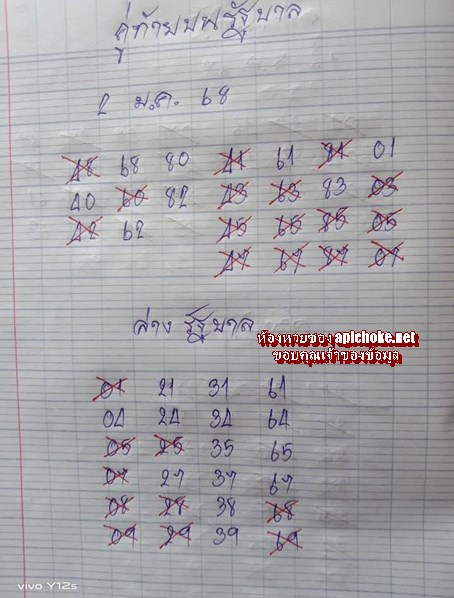 คู่ท้ายบนรัฐบาล
2 ม.ค. 68
48 68 80 41 61 81 01
40 60 82 43 63 83 03
42 62 45 65 85 05
47 67 87 07
ล่าง รัฐบาล
ห้องหวยซอง apichoke.net
ขอบคุณเจ้าของข้อมูล
01 21 31 61
04 24 34 64
05 25 35 65
07 27 37 67
08 28 38 68
09 29 39 69
vivo Y12s